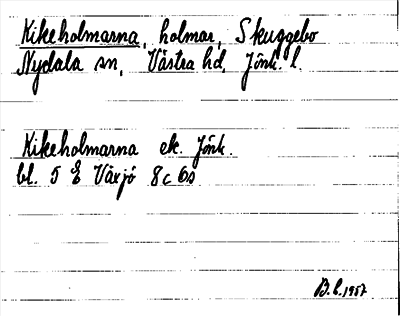 Kikeholmarna, holmar, Skuggebo
Nydala sn, Västra hd, Jönk. l.
Kikeholmarna ek. Jönk.
bl. 5 E Växjö 8c bs
B.E. 1957